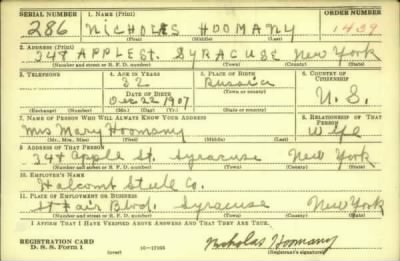 SERIAL NUMBER 1. NAME (Print) ORDER NUMBER
286 NICHOLAS HOOMANY 1439
(First) (Middle) (Last)
2. ADDRESS (Print)
344 APPLE St. SYRACUSE New York
(Number and street or R. F. D. number) (Town) (County) (State)
3. TELEPHONE 4. AGE IN YEARS 5. PLACE OF BIRTH 6. COUNTRY OF CITIZENSHIP
32 Russia
DATE OF BIRTH (Town or county) U. S.
Dec 22 1907
(Exchange) (Number) (Mo.) (Day) (Yr.) (State or country)
7. NAME OF PERSON WHO WILL ALWAYS KNOW YOUR ADDRESS 8. RELATIONSHIP OF THAT PERSON
Mrs Mary Hoomany Wife
(Mr., Mrs., Miss) (First) (Middle) (Last)
9. ADDRESS OF THAT PERSON
344 Apple St. Syracuse New York
(Number and street or R. F. D. number) (Town) (County) (State)
10. EMPLOYER'S NAME
Halcomb Steele Co.
11. PLACE OF EMPLOYMENT OR BUSINESS
Fair Blvd. Syracuse New York
(Number and street or R. F. D. number) (Town) (County) (State)
I AFFIRM THAT I HAVE VERIFIED ABOVE ANSWERS AND THAT THEY ARE TRUE.
REGISTRATION CARD
D. S. S. Form 1 (over) 16—17105 Nicholas Hoomany
(Registrant's signature)